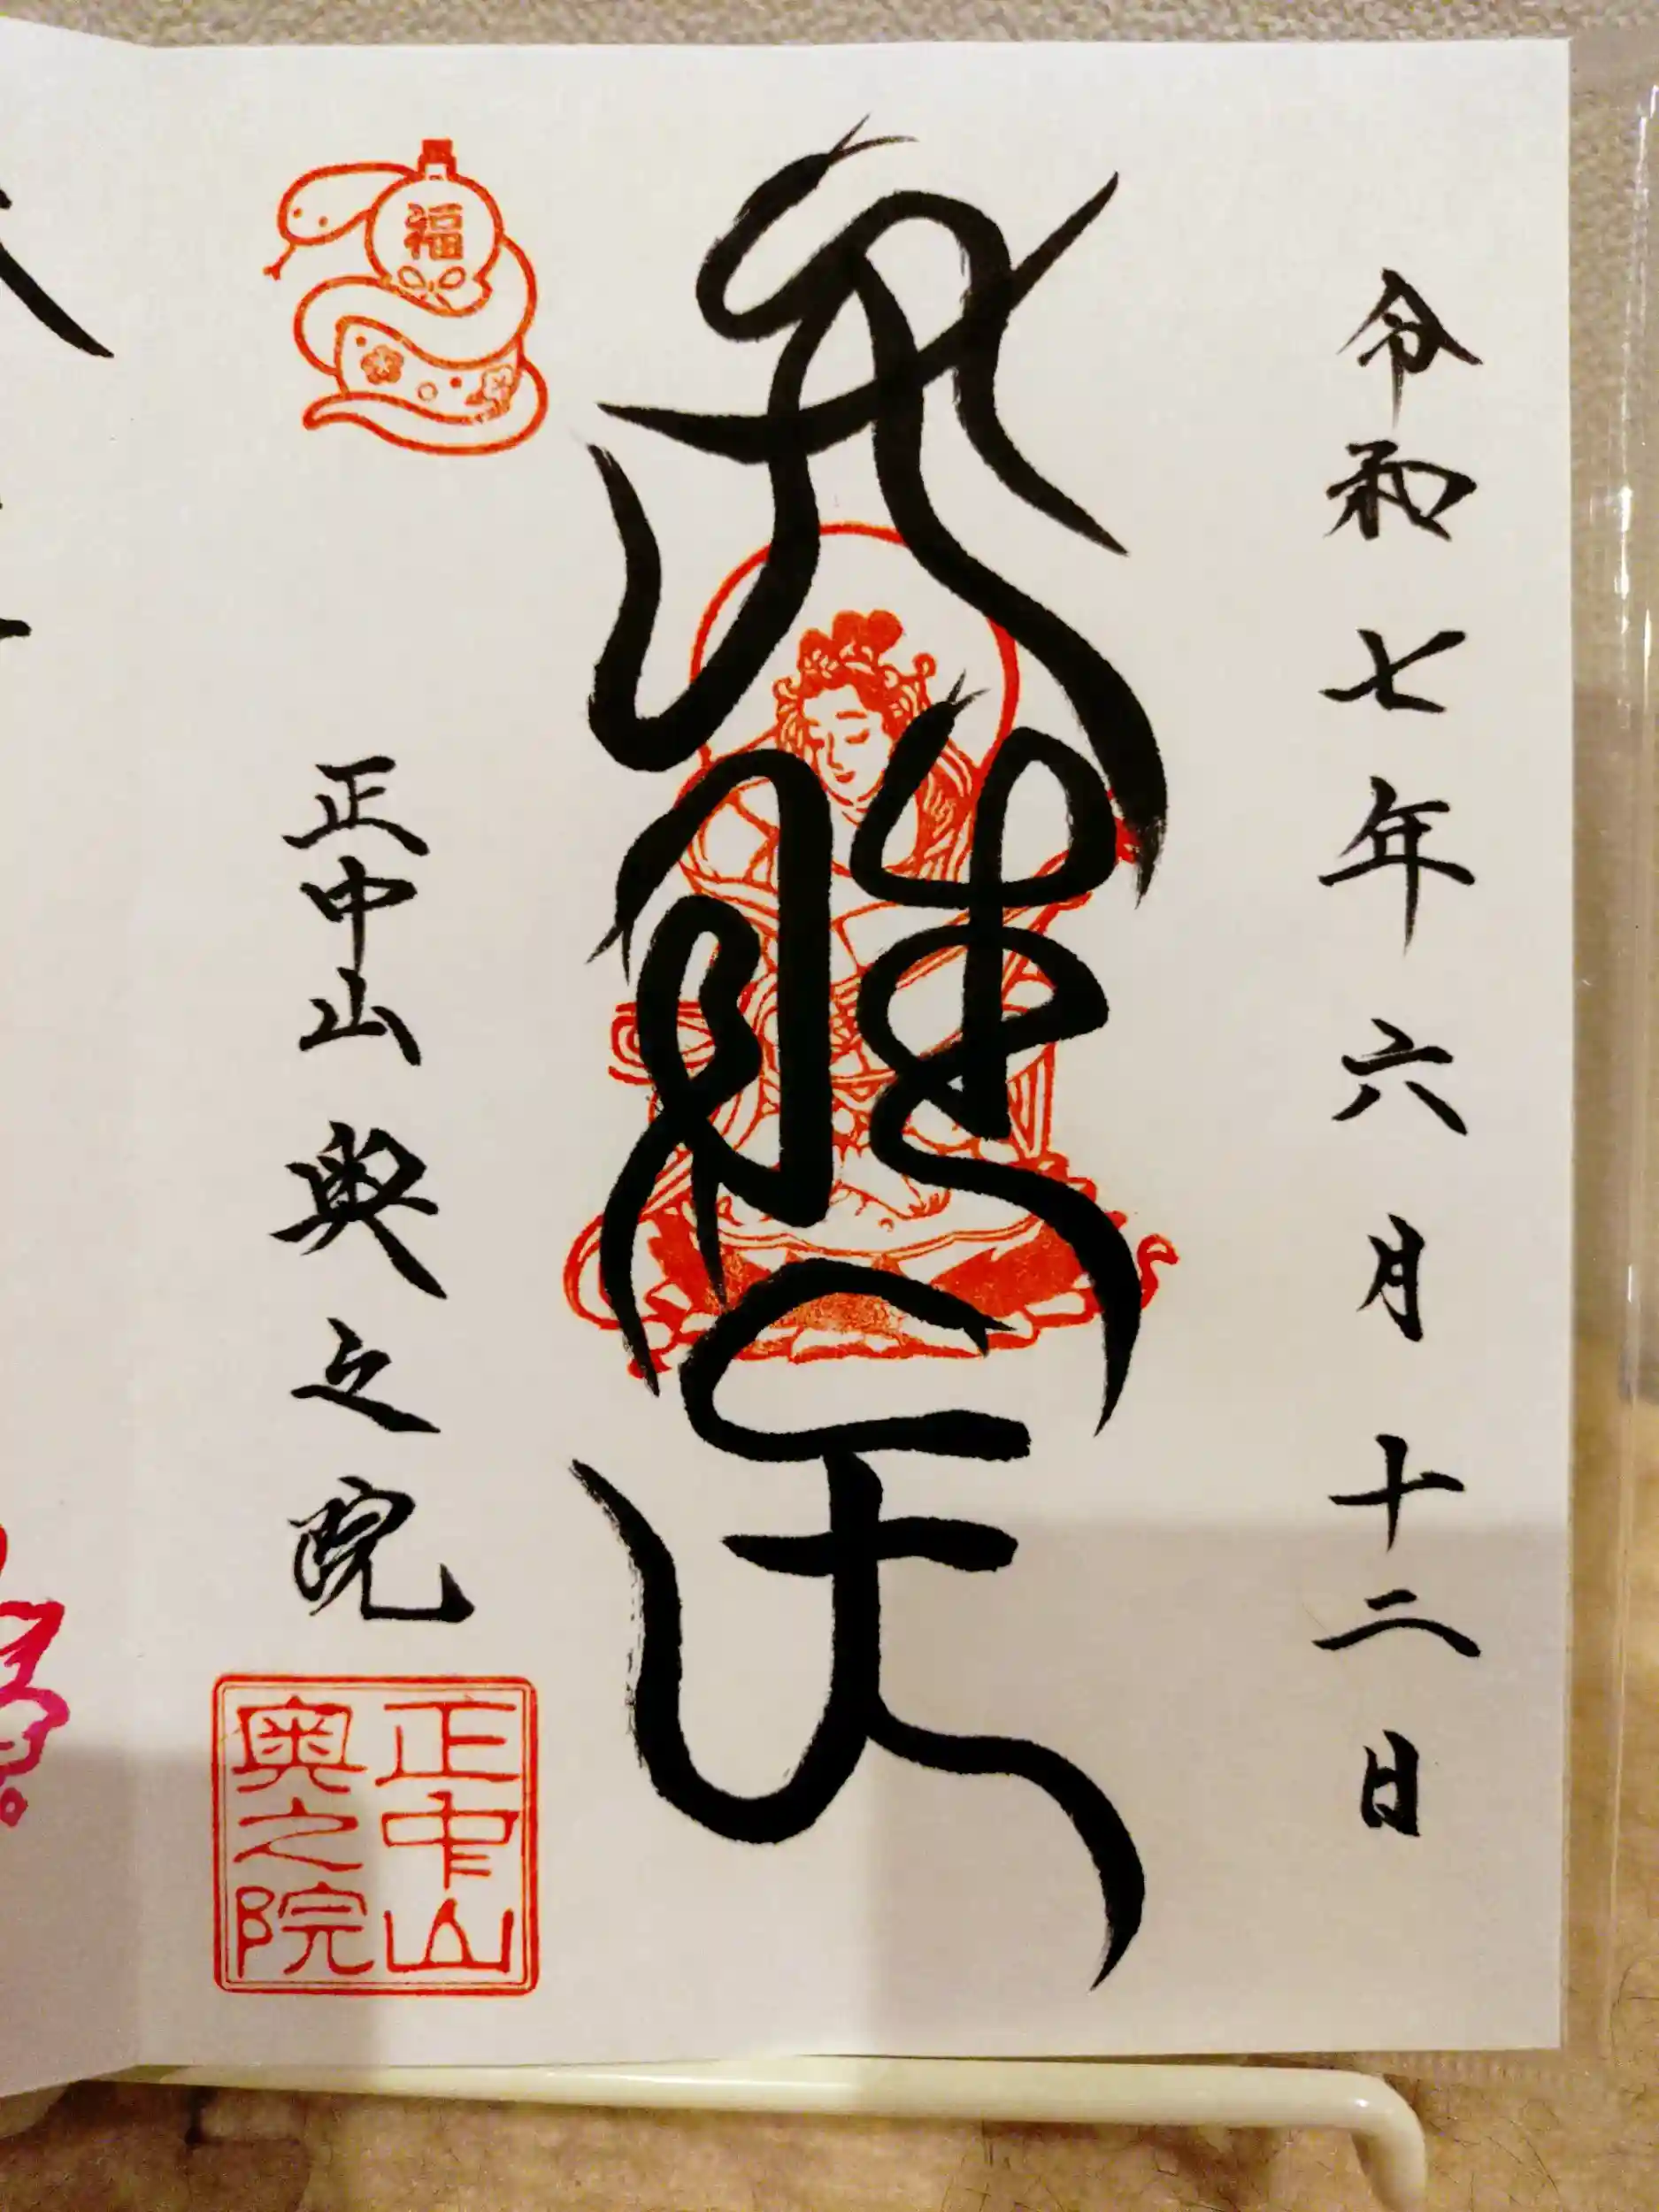 令和七年六月十二日
福
正中山奥之院
正中山
奥之院